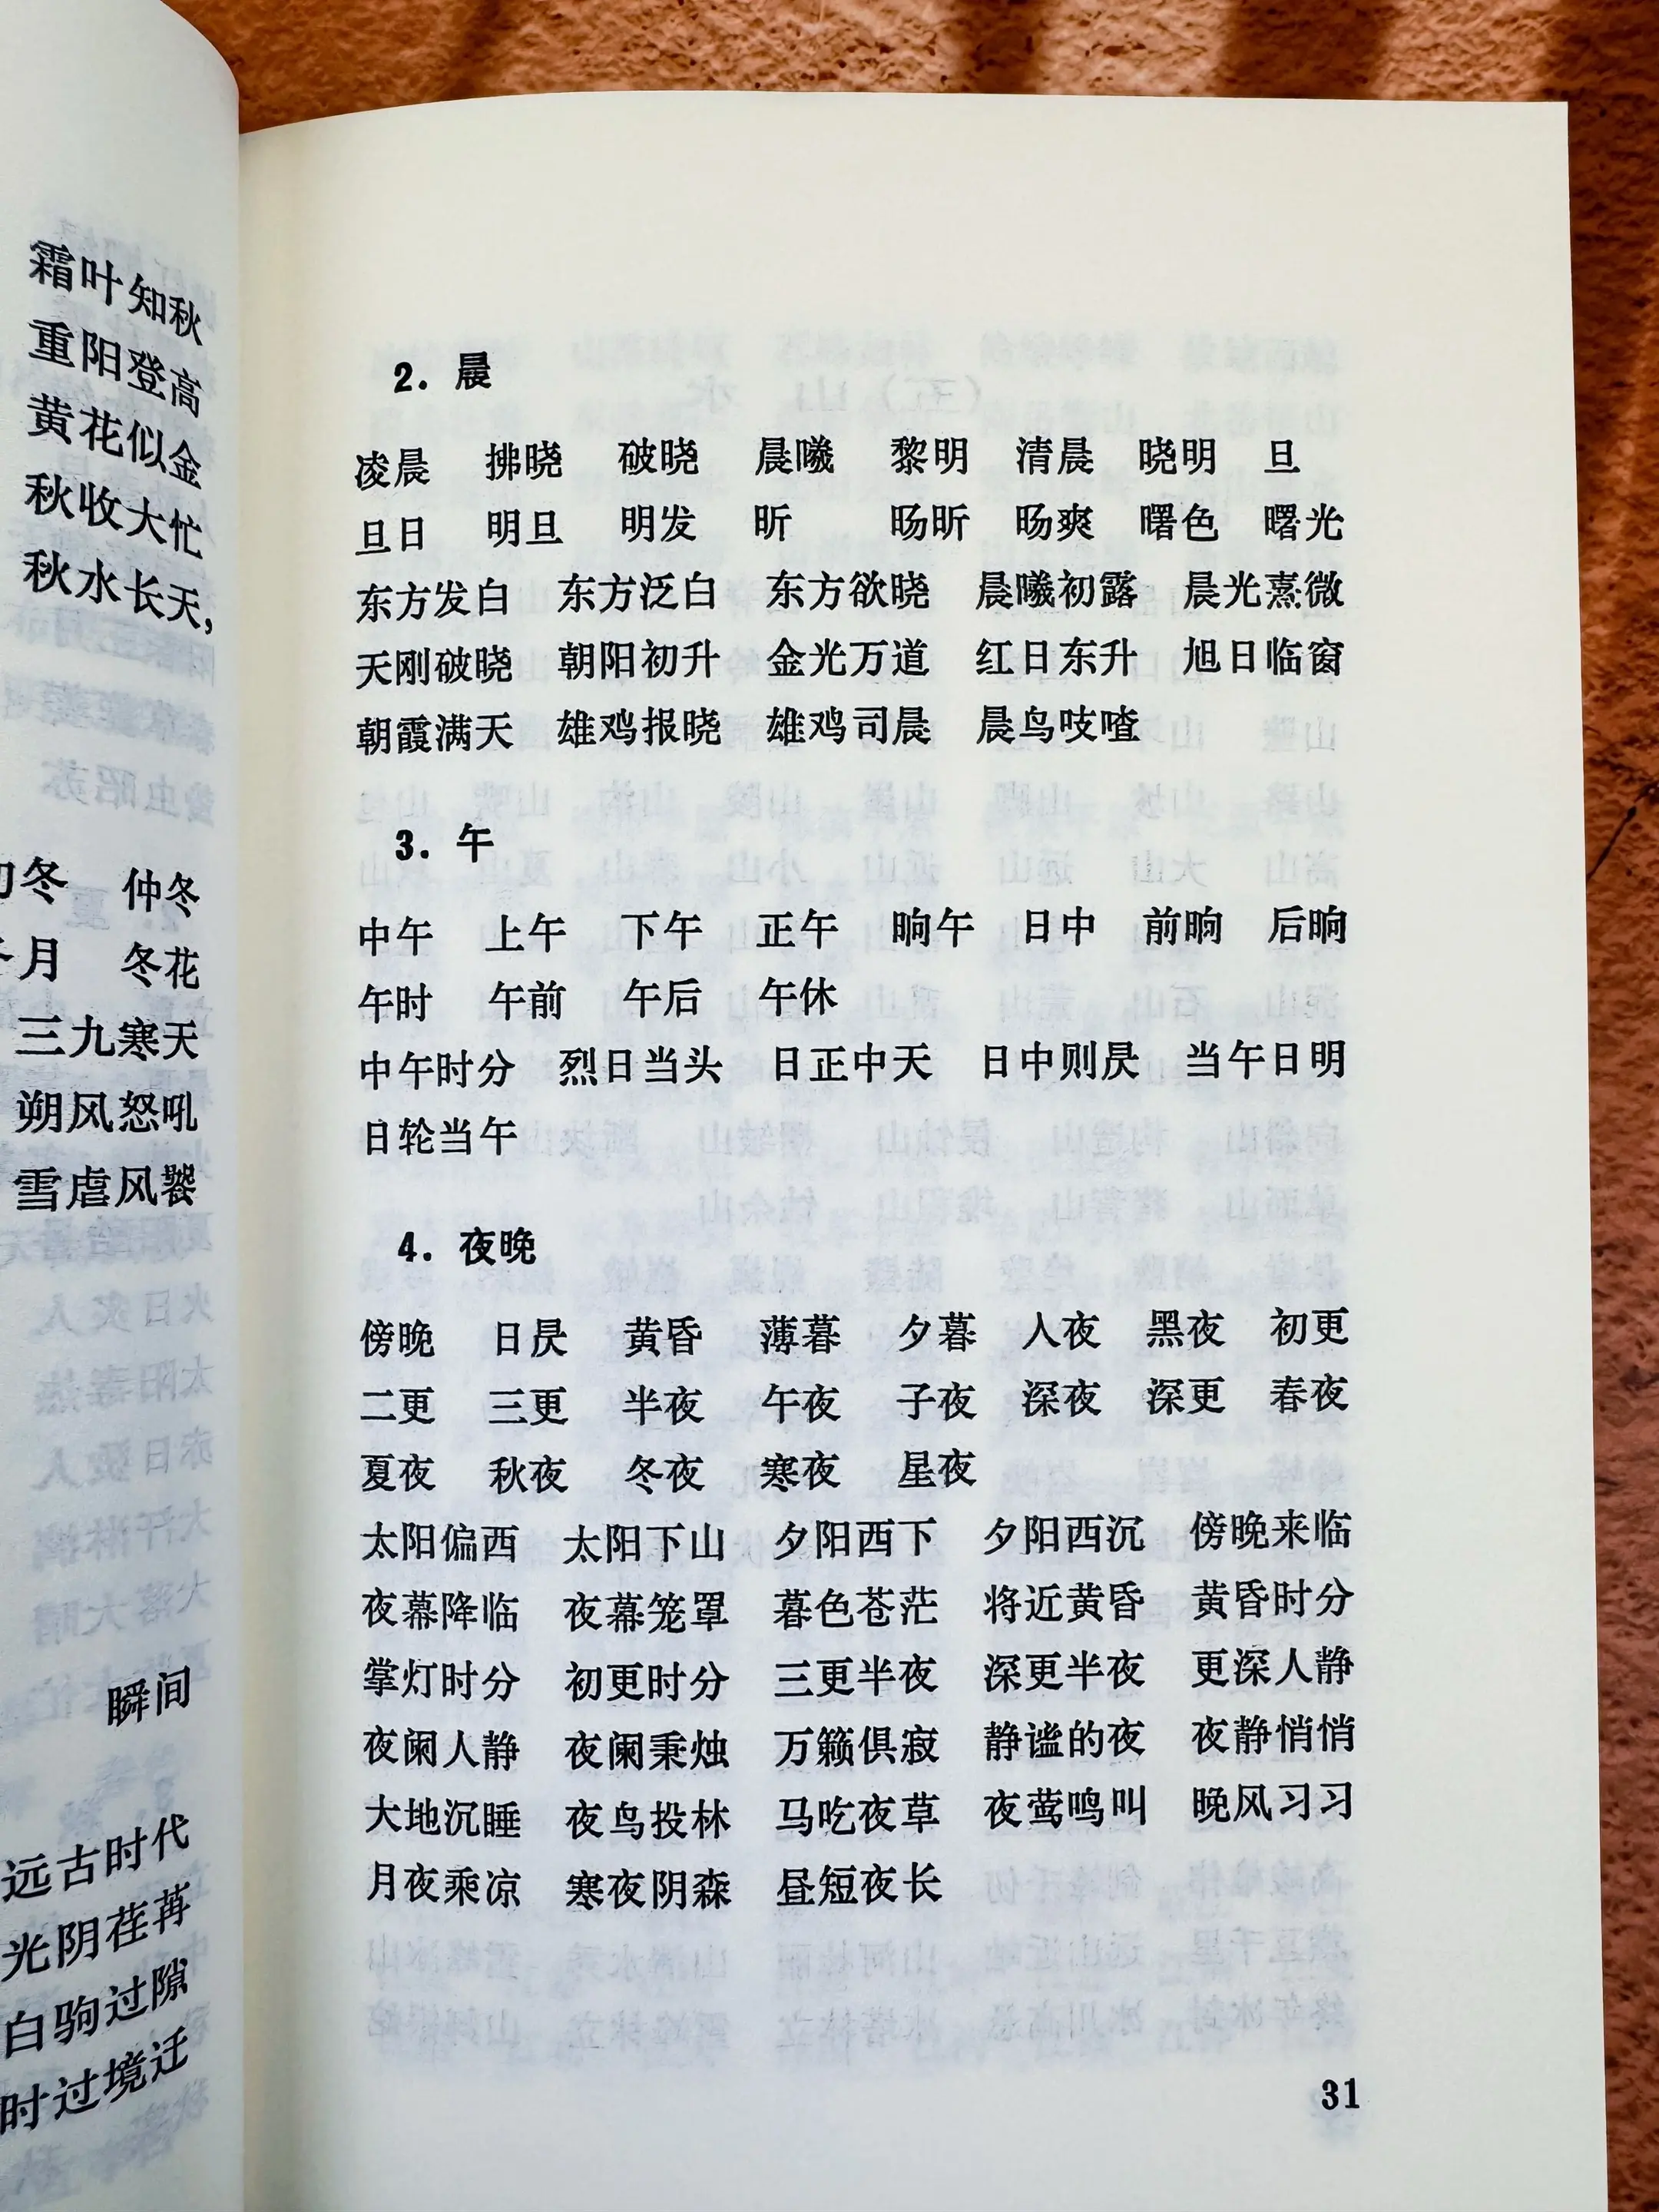 霜叶知秋
重阳登高
黄花似金
秋收大忙
秋水长天，
初冬 仲冬
冬月 冬花
三九寒天
朔风怒吼
雪虐风饕
瞬间
远古时代
光阴荏苒
白驹过隙
时过境迁
2. 晨
凌晨 拂晓 破晓 晨曦 黎明 清晨 晓明 旦
旦日 明旦 明发 昕 旸昕 旸爽 曙色 曙光
东方发白 东方泛白 东方欲晓 晨曦初露 晨光熹微
天刚破晓 朝阳初升 金光万道 红日东升 旭日临窗
朝霞满天 雄鸡报晓 雄鸡司晨 晨鸟吱喳
3. 午
中午 上午 下午 正午 晌午 日中 前晌 后晌
午时 午前 午后 午休
中午时分 烈日当头 日正中天 日中则昃 当午日明
日轮当午
4. 夜晚
傍晚 日昃 黄昏 薄暮 夕暮 入夜 黑夜 初更
二更 三更 半夜 午夜 子夜 深夜 深更 春夜
夏夜 秋夜 冬夜 寒夜 星夜
太阳偏西 太阳下山 夕阳西下 夕阳西沉 傍晚来临
夜幕降临 夜幕笼罩 暮色苍茫 将近黄昏 黄昏时分
掌灯时分 初更时分 三更半夜 深更半夜 更深人静
夜阑人静 夜阑秉烛 万籁俱寂 静谧的夜 夜静悄悄
大地沉睡 夜鸟投林 马吃夜草 夜莺鸣叫 晚风习习
月夜乘凉 寒夜阴森 昼短夜长
31